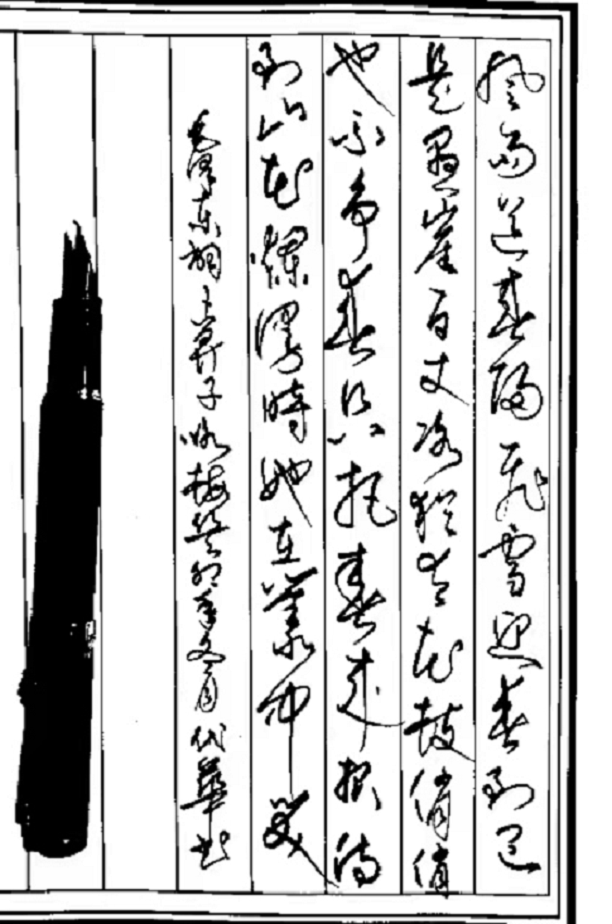 风雨送春归飞雪迎春到已
是悬崖百丈冰犹有花枝俏俏
也不争春只把春来报待
到山花烂漫时她在丛中笑
毛泽东词卜算子咏梅癸卯年夏月代华书